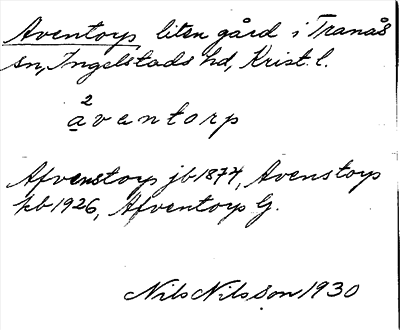 Aventorp liten gård i Tranås
sn, Ingelstads hd, Krist. l.
2
a̲ventorp
Afvenstorp jb 1874, Avenstorp
kb 1926, Afventorp G.
Nils Nilsson 1930